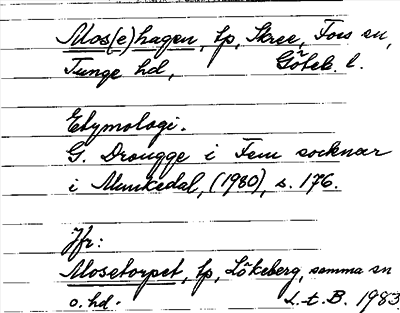 Mos(e)hagen, lp, Skree, Foss sn,
Tunge hd, Göteb. l.
Etymologi.
G. Drougge i Fem socknar
i Munkedal, (1980), s. 176.
Jfr:
Mosetorpet, lp, Lökeberg, samma sn
o. hd. L.t.B. 1983